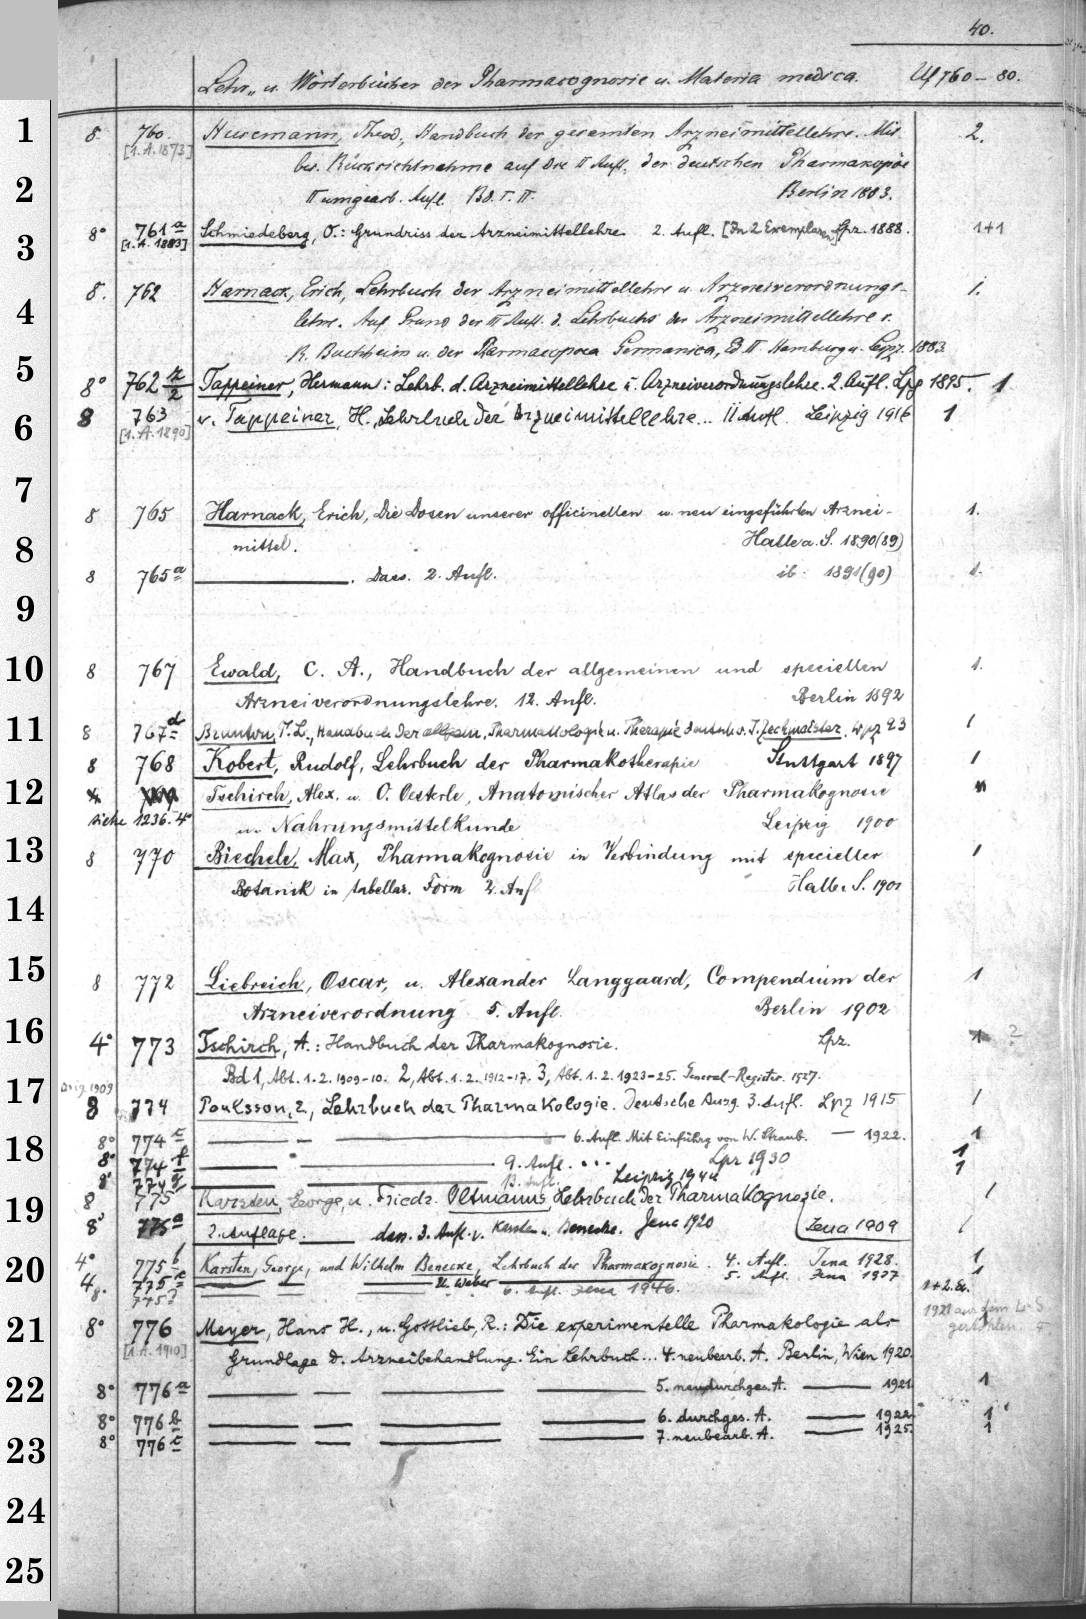 40.
Lehr- u. Wörterbücher der Pharmacognosie u. Materia medica. Uf 760 – 80.
1
8 760. Husemann, Theod., Handbuch der gesamten Arzneimittellehre. Mit 2.
[1. A. 1873] bes. Rücksichtnahme auf die II Aufl. der deutschen Pharmakopöe
2
II umgearb. Aufl. Bd. I. II. Berlin 1883.
3
8° 761 a Schmiedeberg, O.: Grundriss der Arzneimittellehre 2. Aufl. [In 2 Exemplaren] Lpz. 1888. 1+1
[1. A. 1883]
8. 762 Harnack, Erich, Lehrbuch der Arzneimittellehre u. Arzneiverordnungs- 1.
4
lehre. Auf Grund der III Aufl. d. Lehrbuchs der Arzneimittellehre v.
R. Buchheim u. der Pharmacopoea Germanica, Ed II. Hamburg u. Leipz. 1883
5
8° 762 Tappeiner, Hermann: Lehrb. d. Arzneimittellehre u. Arzneiverordnungslehre. 2. Aufl. Lpg 1895. 1
6
8 763 v. Tappeiner, H., Lehrbuch der Arzneimittellehre... II Aufl. Leipzig 1916 1
[1. A. 1890]
7
8 765 Harnack, Erich, Die Dosen unserer officinellen u. neu eingeführten Arznei- 1.
8
mittel. Halle a. S. 1890 (89)
8 765 a ———. Dass. 2. Aufl. ib. 1891 (90) 1.
9
10
8 767 Ewald, C. A., Handbuch der allgemeinen und speciellen 1.
Arzneiverordnungslehre. 12. Aufl. Berlin 1892
11
8 767 d Brunton, T. L., Handbuch der allgem. Pharmakologie u. Therapie deutsch v. J. Zechmeister. Lpz 93 1
8 768 Kobert, Rudolf, Lehrbuch der Pharmakotherapie Stuttgart 1897 1
12
Tschirch, Alex. u. O. Oesterle, Anatomischer Atlas der Pharmakognosie
siehe 1236. 4° u. Nahrungsmittelkunde Leipzig 1900
13
8 770 Biechele, Max, Pharmakognosie in Verbindung mit specieller 1
Botanik in tabellar. Form 2. Aufl Halle S. 1901
14
15
8 772 Liebreich, Oscar, u. Alexander Langgaard, Compendium der 1
Arzneiverordnung 5. Aufl. Berlin 1902
16
4° 773 Tschirch, A.: Handbuch der Pharmakognosie. Lpz. 2
Bd 1, Abt. 1-2. 1909-10. 2, Abt. 1-2. 1912-17. 3, Abt. 1-2. 1923-25. General-Register. 1927.
17
1909
8 774 Poulsson, E, Lehrbuch der Pharmakologie. Deutsche Ausg. 3. Aufl. Lpz 1915 1
18
8° 774 c ——— – ——— 6. Aufl. Mit Einführg von W. Straub. — 1922. 1
8° 774 f ——— ——— 9. Aufl. ... Lpz 1930 1
8° 774 g ——— ——— 13. Aufl. Leipzig 1944 1
19
8 775 Karsten, George, u. Friedr. Oltmanns Lehrbuch der Pharmakognosie. 1
8° 775 a 2. Auflage. ——— dass. 3. Aufl. v. Karsten u. Benecke. Jena 1920 Jena 1909
20
4° 775 b Karsten, George, und Wilhelm Benecke, Lehrbuch der Pharmakognosie. 4. Aufl. Jena 1928. 1
4. 775 c ——— — ——— u. Weber ——— 5. Aufl. Jena 1937 1
8. 775 ——— — 6. Aufl. Jena 1946. 1+2. Ex.
21
8° 776 Meyer, Hans H., u. Gottlieb, R.: Die experimentelle Pharmakologie als
[1. A. 1910] Grundlage d. Arzneibehandlung. Ein Lehrbuch... 4. neubearb. A. Berlin, Wien 1920.
22
8° 776 a ——— — ——— ——— 5. neudurchges. A. ——— 1921 1
8° 776 b ——— — ——— ——— 6. durchges. A. ——— 1922 1
23
8° 776 c ——— — ——— ——— 7. neubearb. A. ——— 1925. 1
24
25